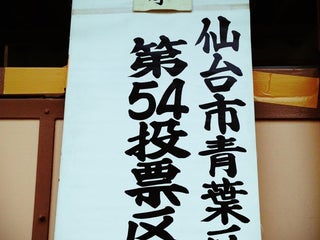 仙台市青葉区
第54投票区